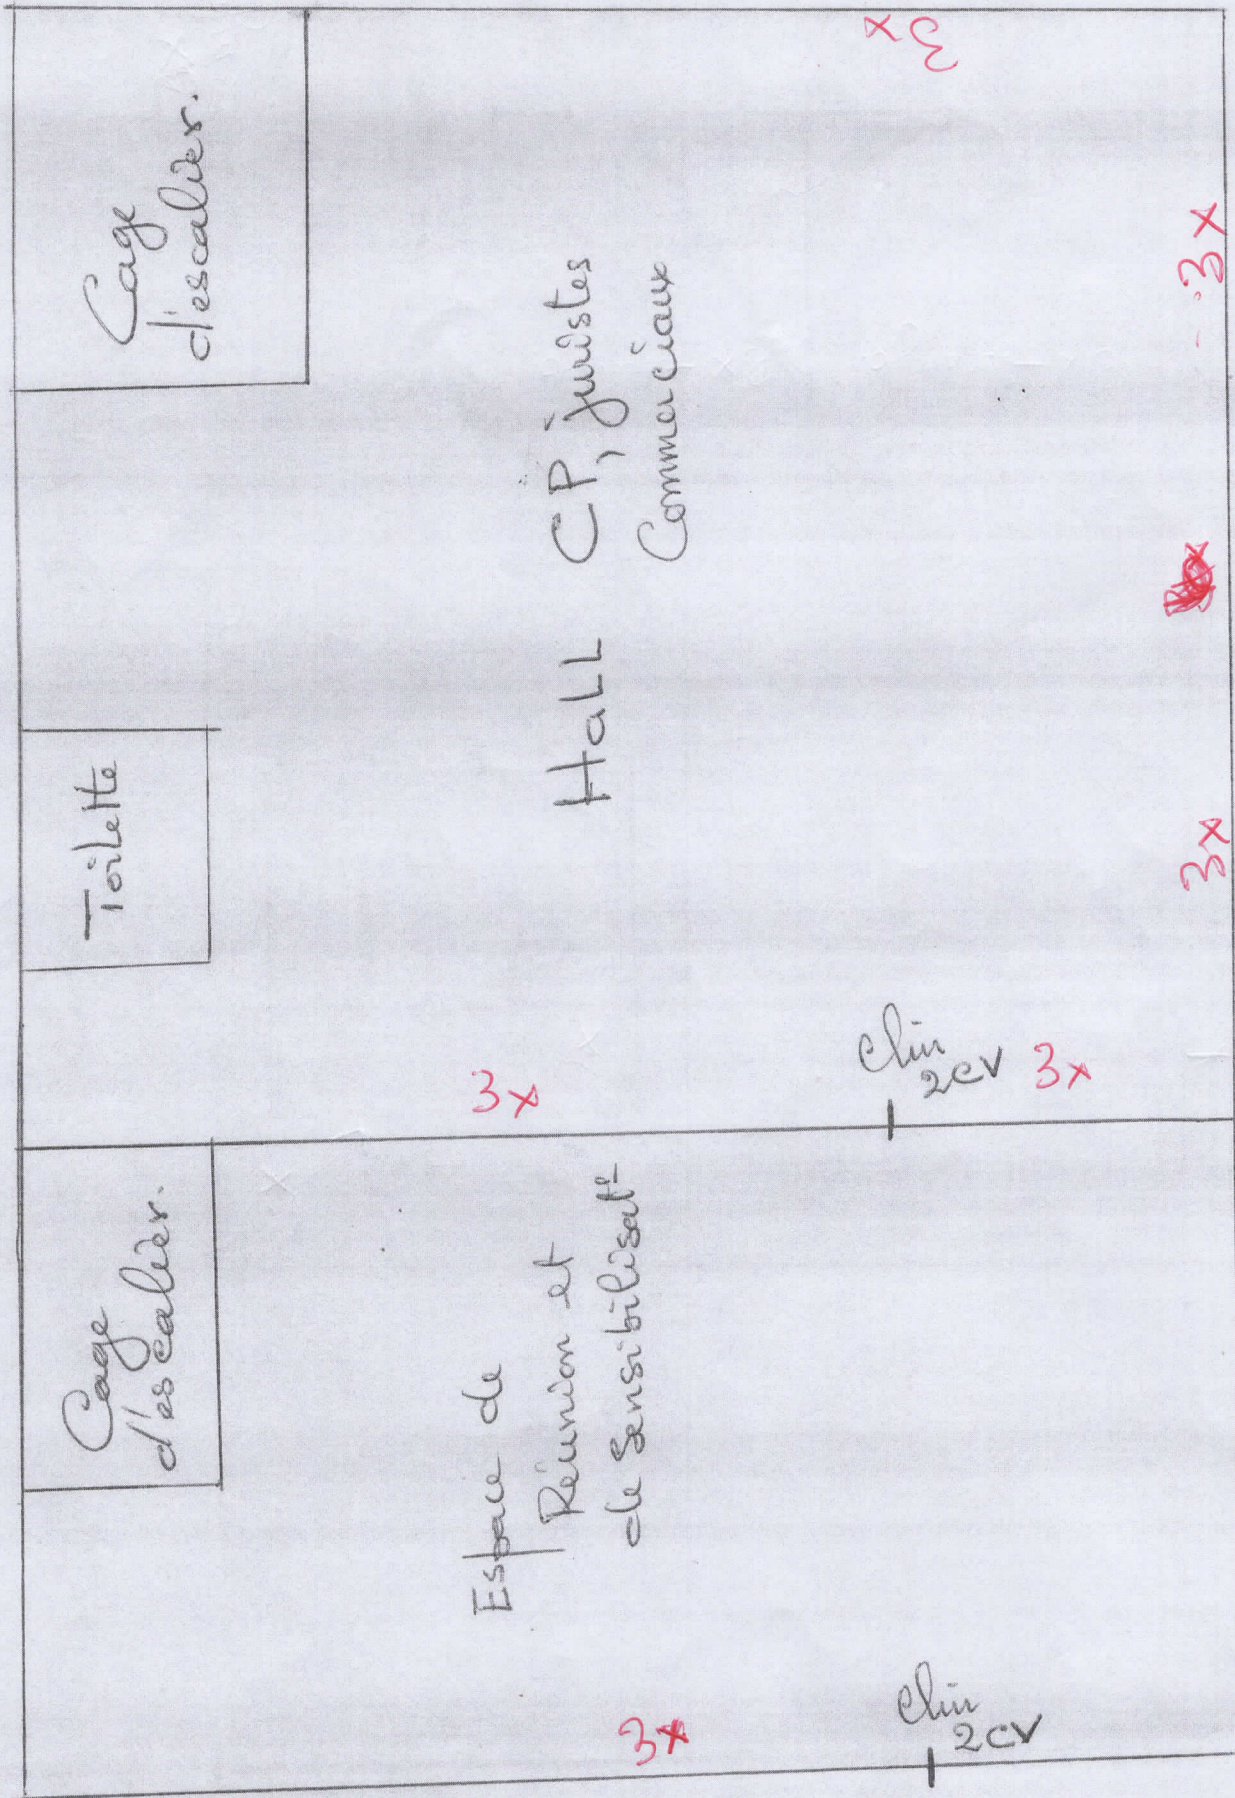 Cage
d'escalier.
Toilette
Cage
d'escalier.
Hall CP, juristes
Commerciaux
Espace de
Réunion et
de Sensibilisat°
3x
3x
3x
3x
3x
3x
Clim
2cv
Clim
2cv